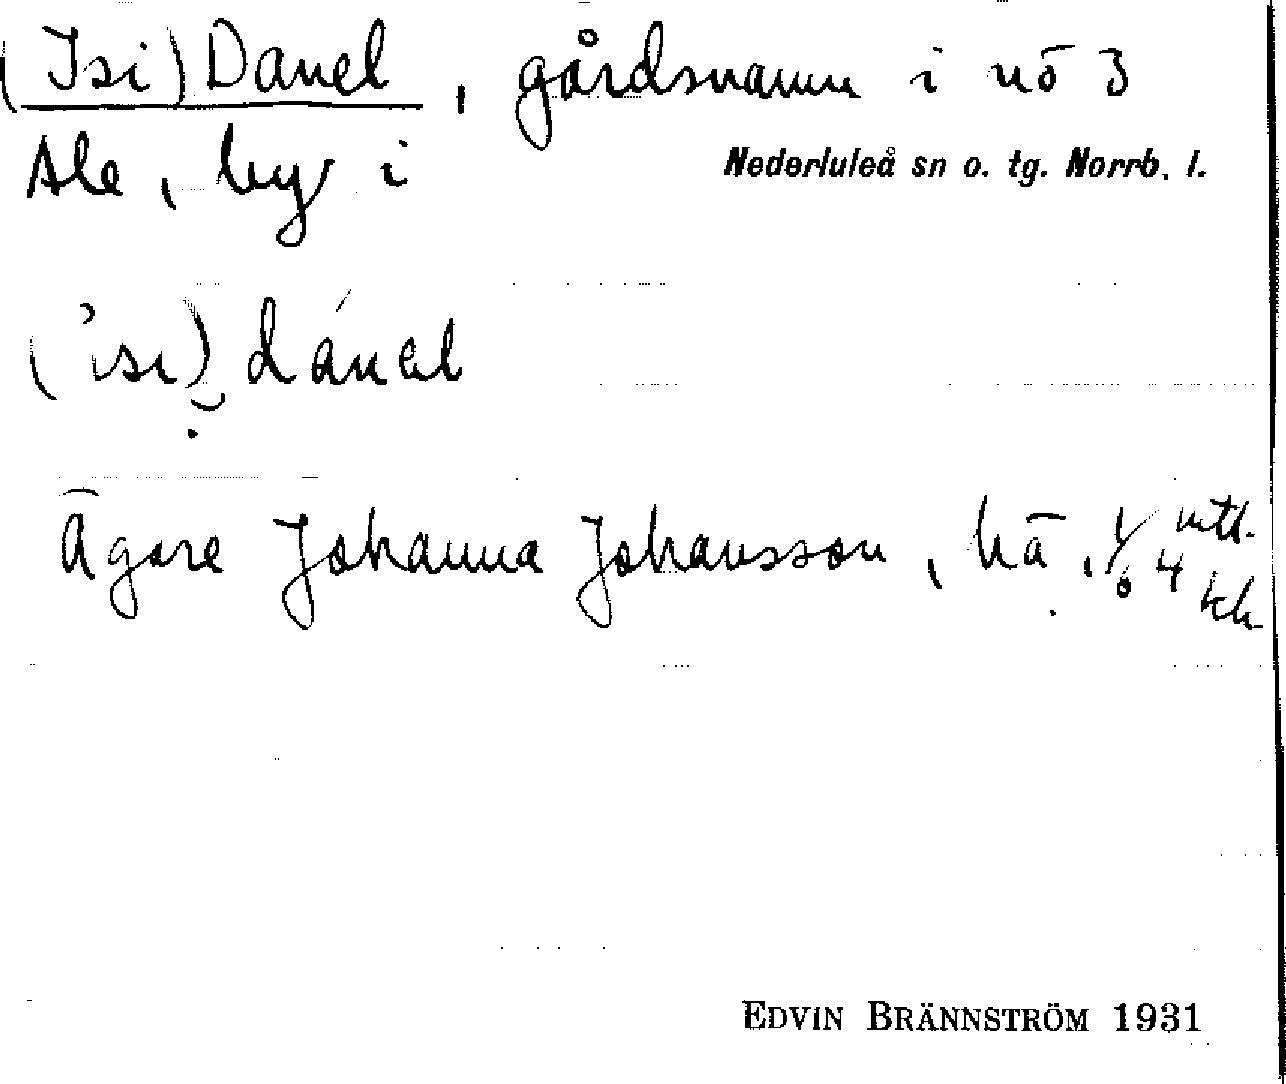 (Isi)Danel, gårdsnamn i nö 3
Ale, by i
Nederluleå sn o. tg. Norrb. l.
(ʾisi) dánəl
Ägare Johanna Johansson, hä, 1/64 mtl.
EDVIN BRÄNNSTRÖM 1931